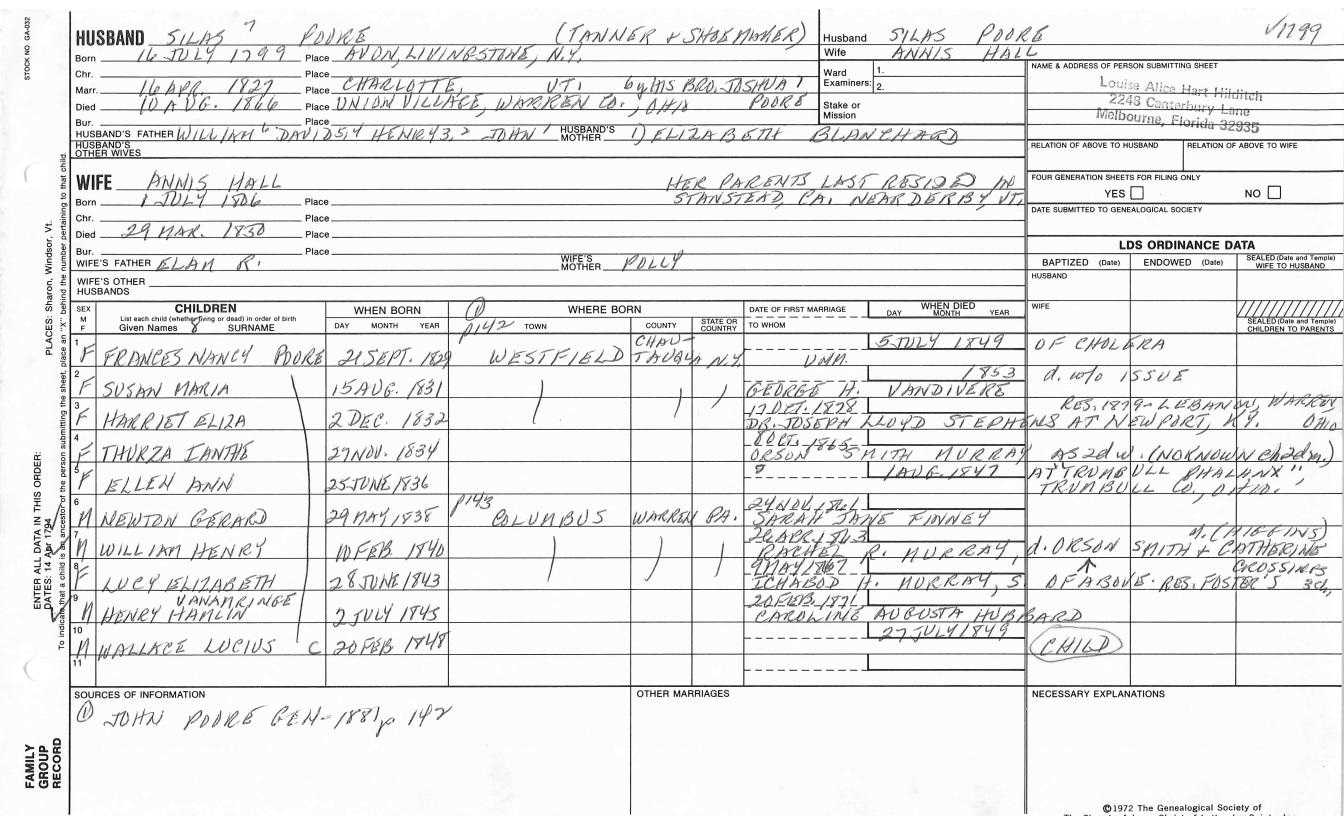 STOCK NO. GA-032
HUSBAND SILAS 7 POORE (TANNER + SHOEMAKER)
Born 16 JULY 1799 Place AVON, LIVINGSTONE, N.Y.
Chr. Place
Marr. 16 APR. 1827 Place CHARLOTTE, VT. by HIS BRO. JOSHUA 7
Died 10 AUG. 1866 Place UNION VILLAGE, WARREN CO., OHIO POORE
Bur. Place
HUSBAND'S FATHER WILLIAM 6 DAVID 5,4 HENRY 3,2 JOHN 1 HUSBAND'S MOTHER 1) ELIZABETH BLANCHARD
HUSBAND'S OTHER WIVES
WIFE ANNIS HALL HER PARENTS LAST RESIDED IN
Born 1 JULY 1806 Place STANSTEAD, PA. NEAR DERBY, VT.
Chr. Place
Died 29 MAR. 1850 Place
Bur. Place
WIFE'S FATHER ELAM R. WIFE'S MOTHER POLLY
WIFE'S OTHER HUSBANDS
Husband SILAS POORE √1799
Wife ANNIS HALL
Ward Examiners: 1.
2.
Stake or Mission
NAME & ADDRESS OF PERSON SUBMITTING SHEET
Louise Alice Hart Hilditch
2248 Canterbury Lane
Melbourne, Florida 32935
RELATION OF ABOVE TO HUSBAND RELATION OF ABOVE TO WIFE
FOUR GENERATION SHEETS FOR FILING ONLY
YES NO
DATE SUBMITTED TO GENEALOGICAL SOCIETY
LDS ORDINANCE DATA
BAPTIZED (Date) ENDOWED (Date) SEALED (Date and Temple) WIFE TO HUSBAND
HUSBAND
WIFE
SEALED (Date and Temple) CHILDREN TO PARENTS
SEX M F CHILDREN WHEN BORN ① WHERE BORN DATE OF FIRST MARRIAGE WHEN DIED
List each child (whether living or dead) in order of birth
Given Names 8 SURNAME DAY MONTH YEAR p142 TOWN COUNTY STATE OR COUNTRY TO WHOM DAY MONTH YEAR
1 F FRANCES NANCY POORE 21 SEPT. 1829 WESTFIELD CHAU-TAUQUA N.Y. UNM. 5 JULY 1849 OF CHOLERA
2 F SUSAN MARIA 15 AUG. 1831 GEORGE H. VANDIVERE 1853 d. w/o ISSUE
3 F HARRIET ELIZA 2 DEC. 1832 17 OCT. 1878 RES. 1879 - LEBANON, WARREN
DR. JOSEPH LLOYD STEPHENS AT NEWPORT, KY. OHIO
4 F THURZA IANTHE 27 NOV. 1834 8 OCT. 1865 ORSON SMITH MURRAY AS 2d w. (NO KNOWN chddrn.)
5 F ELLEN ANN 25 JUNE 1836 1 AUG. 1847 AT "TRUMBULL PHALANX"
TRUMBULL CO., OHIO.
6 M NEWTON GERARD 29 MAY 1838 p143 COLUMBUS WARREN PA. 24 NOV. 1861 SARAH JANE FINNEY
7 M WILLIAM HENRY 10 FEB 1840 26 APR. 1863 RACHEL R. MURRAY, d. ORSON SMITH + CATHERINE M. (HIGGINS)
8 F LUCY ELIZABETH 28 JUNE 1843 9 MAY 1867 ICHABOD H. MURRAY, S. OF ABOVE. RES. FOSTER'S CROSSINGS 3 Ch,
9 M HENRY VANAMRINGE HAMLIN 2 JULY 1845 20 FEB. 1871 CAROLINE AUGUSTA HUBBARD
10 M WALLACE LUCIUS C 20 FEB 1848 27 JULY 1849 CHILD
11
SOURCES OF INFORMATION OTHER MARRIAGES NECESSARY EXPLANATIONS
① JOHN POORE GEN - 1881 p 142
ENTER ALL DATA IN THIS ORDER:
DATES: 14 Apr 1794 PLACES: Sharon, Windsor, Vt.
To indicate that a child is an ancestor of the person submitting the sheet, place an "X" behind the number pertaining to that child.
FAMILY
GROUP
RECORD
©1972 The Genealogical Society of